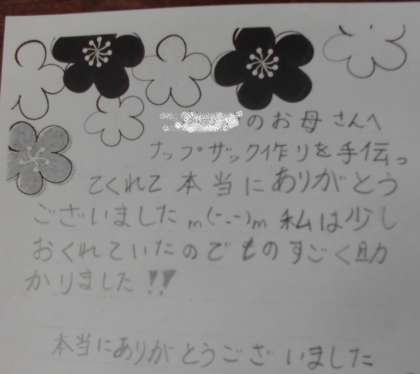 のお母さんへ
ナップザック作りを手伝っ
てくれて本当にありがとう
ございましたm(-.-)m 私は少し
おくれていたのでものすごく助
かりました!!
本当にありがとうございました